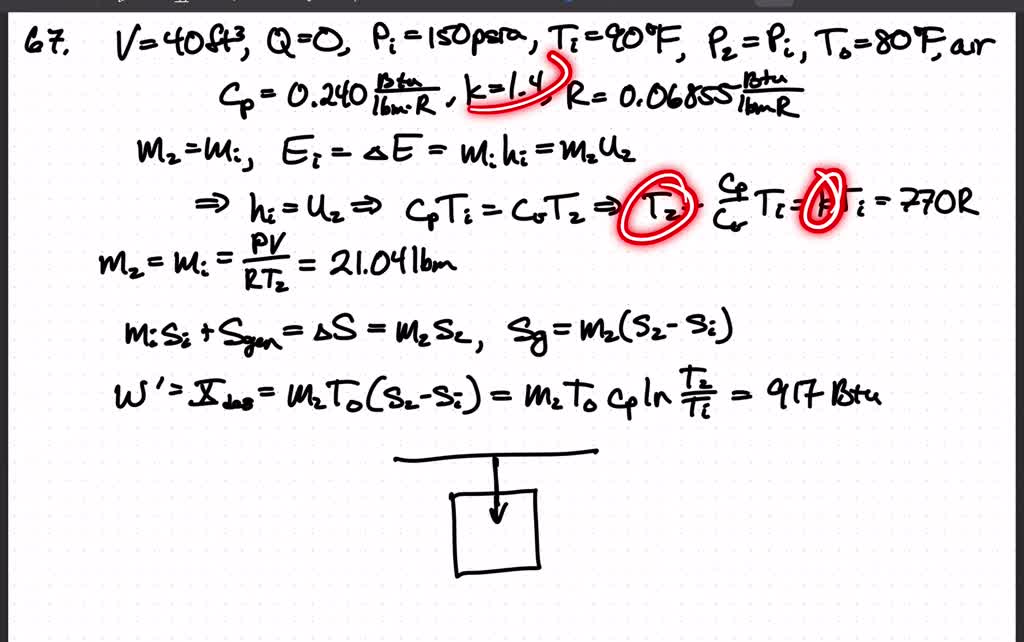 67. V=40ft³, Q=0, Pi=150psia, Ti=90°F, P₂=Pi, T₀=80°F, air
Cp = 0.240 Btu/lbm·R, k=1.4, R=0.06855 Btu/lbm R
m₂=mi, Ei = ΔE = mihi = m₂u₂
⇒ hi=u₂ ⇒ CpTi=CvT₂ ⇒ T₂ = Cp/Cv Ti = kTi = 770R
m₂=mi= PV/RT₂ = 21.04 lbm
misi + Sgen = ΔS = m₂s₂, Sg = m₂(s₂-si)
W' = Xdes = m₂T₀(s₂-si) = m₂T₀ Cp ln T₂/Ti = 917 Btu